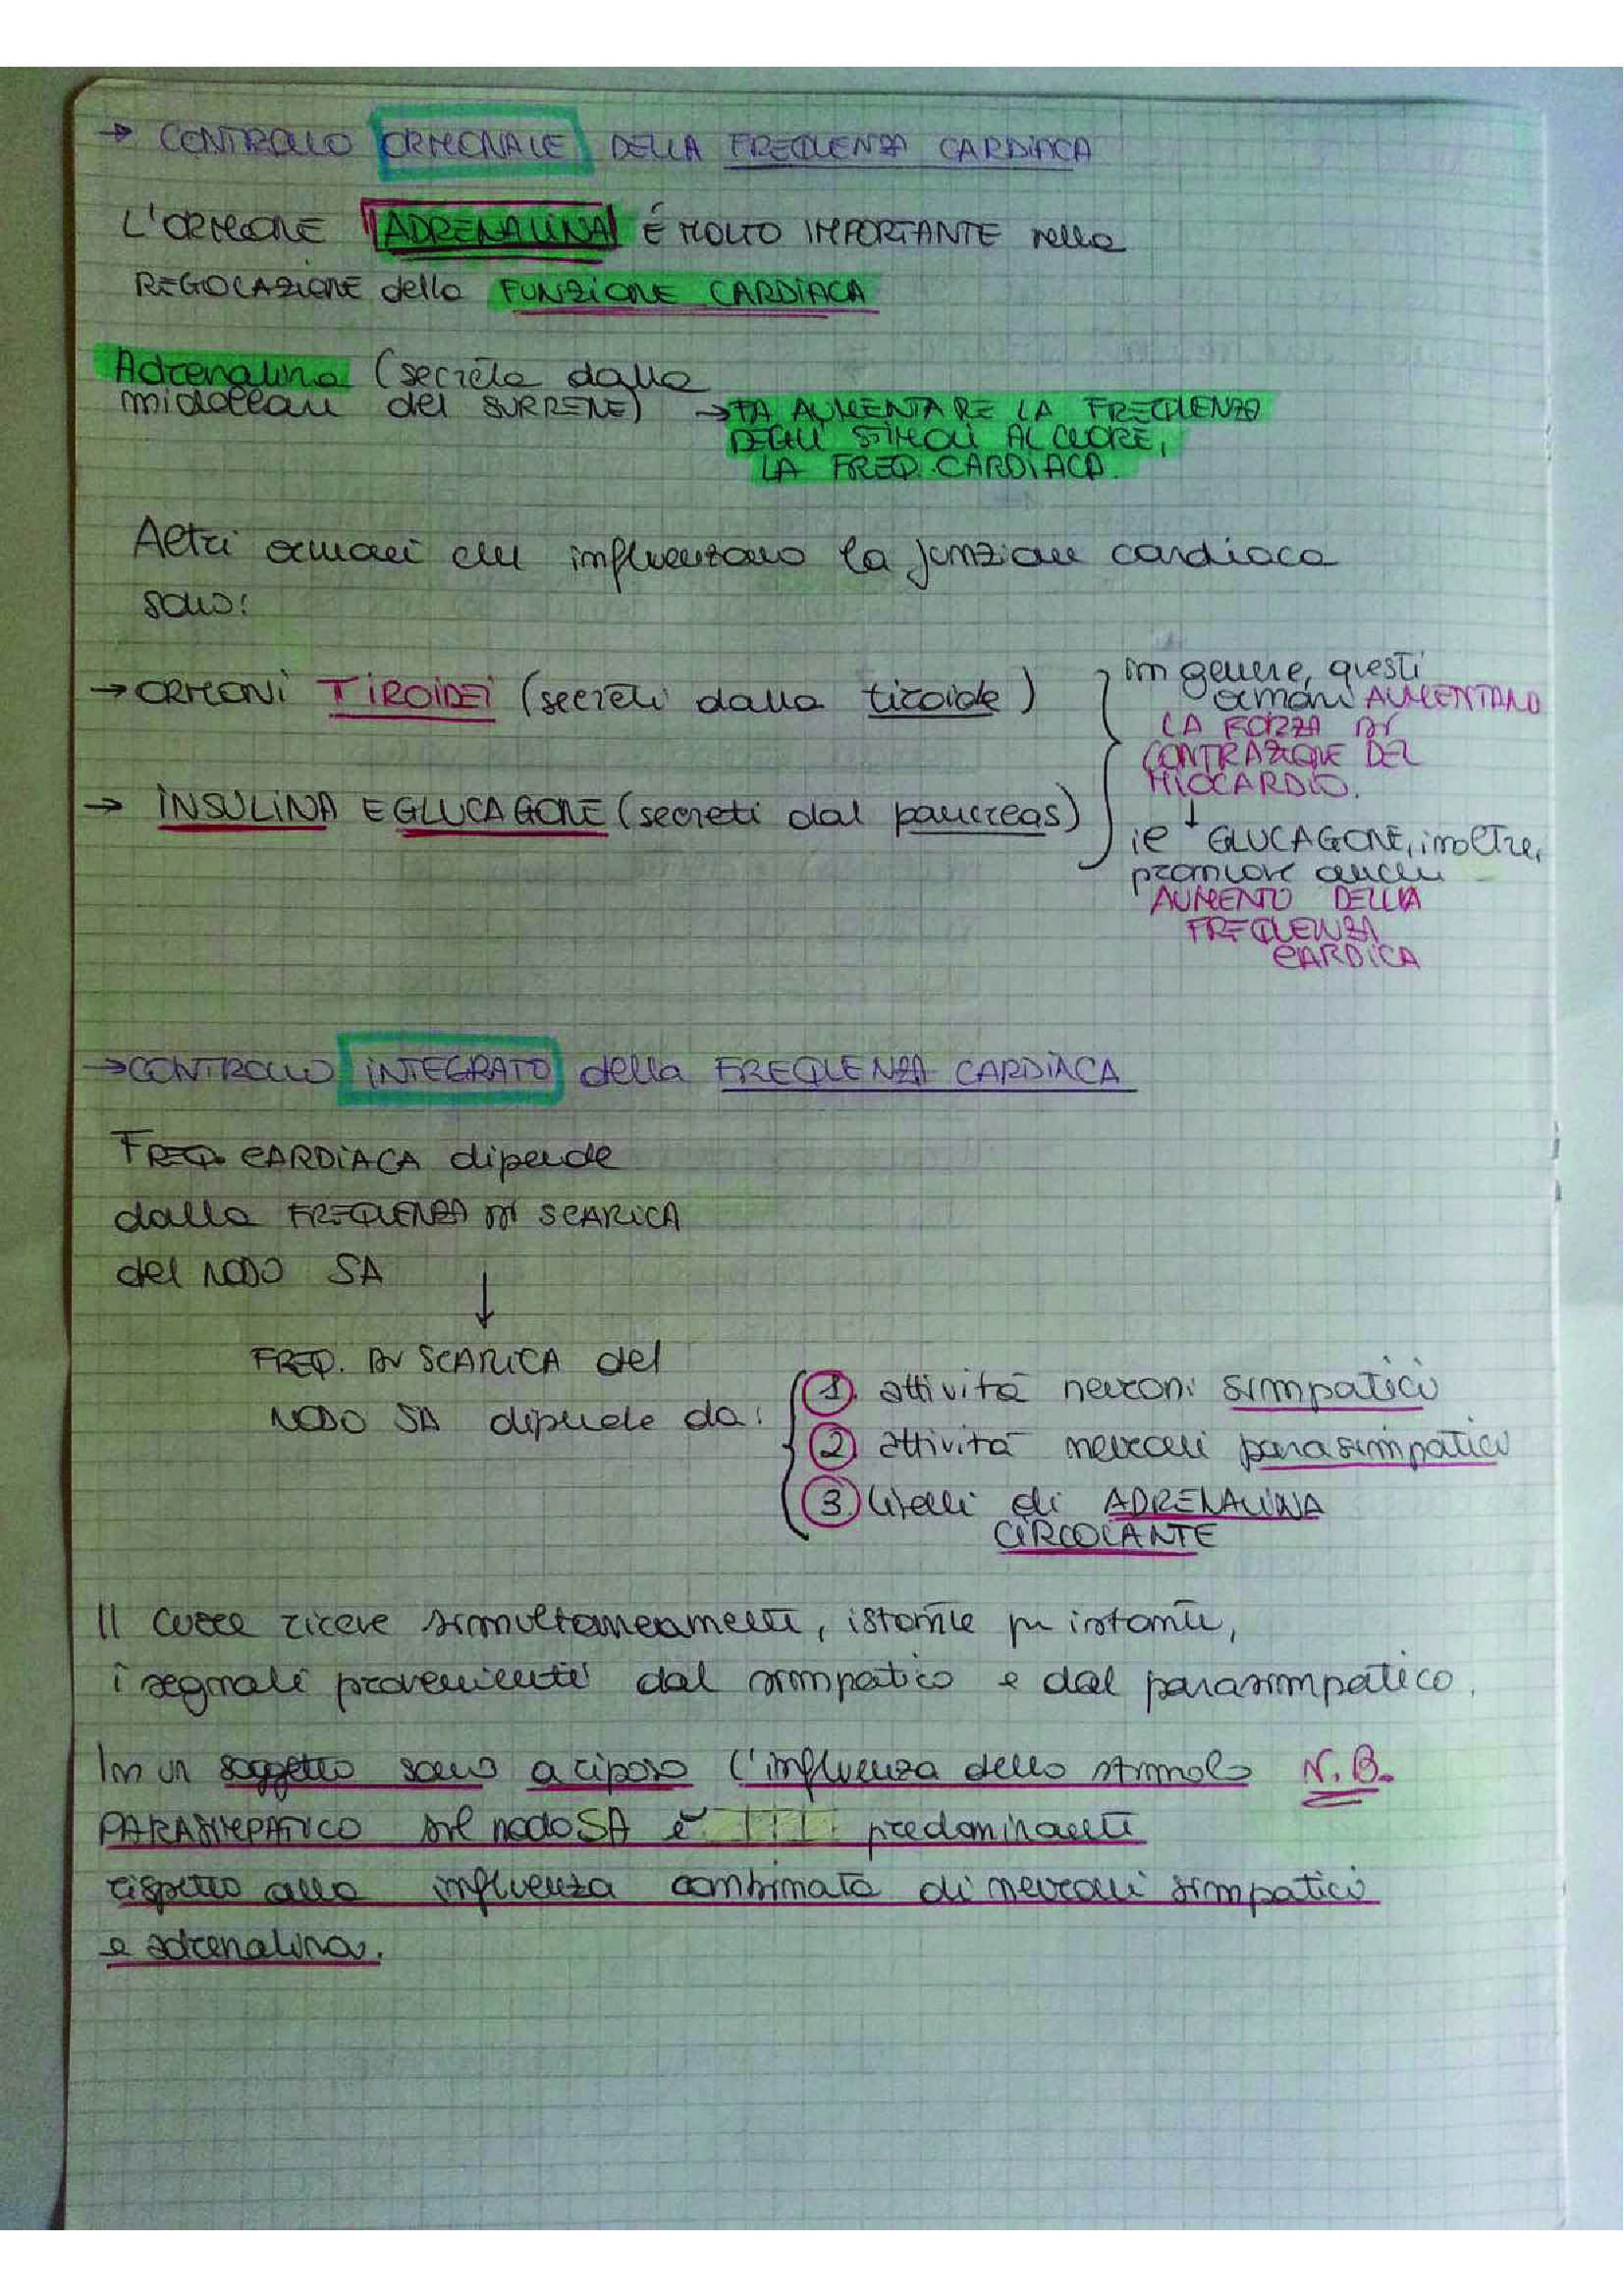 → CONTROLLO ORMONALE DELLA FREQUENZA CARDIACA
L'ORMONE ADRENALINA É MOLTO IMPORTANTE nella
REGOLAZIONE della FUNZIONE CARDIACA
Adrenalina (secreta dalla
midollare del SURRENE) → FA AUMENTARE LA FREQUENZA
DEGLI STIMOLI AL CUORE,
LA FREQ. CARDIACA.
Altri ormoni che influenzano la funzione cardiaca
sono:
→ ORMONI TIROIDEI (secreti dalla tiroide)
→ INSULINA E GLUCAGONE (secreti dal pancreas)
in genere, questi
ormoni AUMENTANO
LA FORZA DI
CONTRAZIONE DEL
MIOCARDIO.
↓
il GLUCAGONE, inoltre,
promuove anche
AUMENTO DELLA
FREQUENZA
CARDICA
→ CONTROLLO INTEGRATO della FREQUENZA CARDIACA
FREQ. CARDIACA dipende
dalla FREQUENZA DI SCARICA
del NODO SA
↓
FREQ. DI SCARICA del
NODO SA dipende da:
1. attività neuroni simpatici
2. attività neuroni parasimpatici
3. livelli di ADRENALINA
CIRCOLANTE
Il cuore riceve simultaneamente, istante per istante,
i segnali provenienti dal simpatico e dal parasimpatico.
In un soggetto sano a riposo l'influenza dello stimolo N.B.
PARASIMPATICO sul nodo SA è predominante
rispetto alla influenza combinata di neuroni simpatici
e adrenalina.